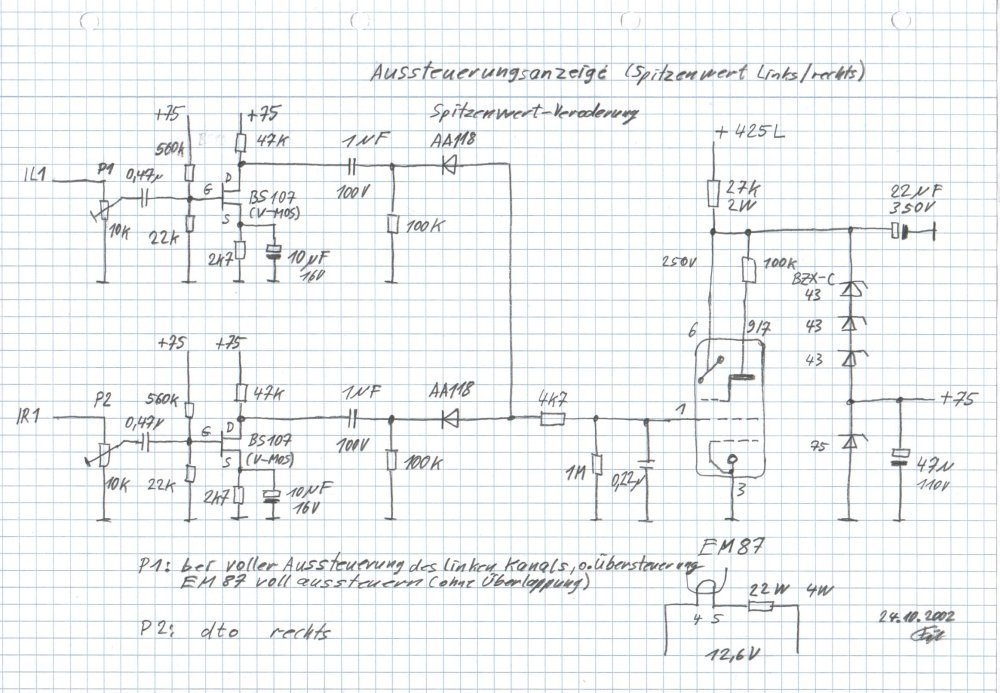 Aussteuerungsanzeige (Spitzenwert Links/rechts)
Spitzenwert-Veroderung
+75
+75
560K
47K
1µF
AA118
IL1
P1
0,47µ
G
D
S
BS107
(V-MOS)
100V
10K
22K
2K7
10µF
16V
100K
+425L
27K
2W
22µF
350V
250V
100K
BZX-C
43
43
43
6
9/7
1
3
+75
75
47µ
110V
+75
+75
560K
47K
1µF
AA118
4K7
IR1
P2
0,47µ
G
D
S
BS107
(V-MOS)
100V
10K
22K
2K7
10µF
16V
100K
1M
0,22µ
EM87
P1: bei voller Aussteuerung des linken Kanals, o. Übersteuerung
EM 87 voll aussteuern (ohne Überlappung)
P2: dto rechts
22W 4W
4 5
12,6V
24.10.2002